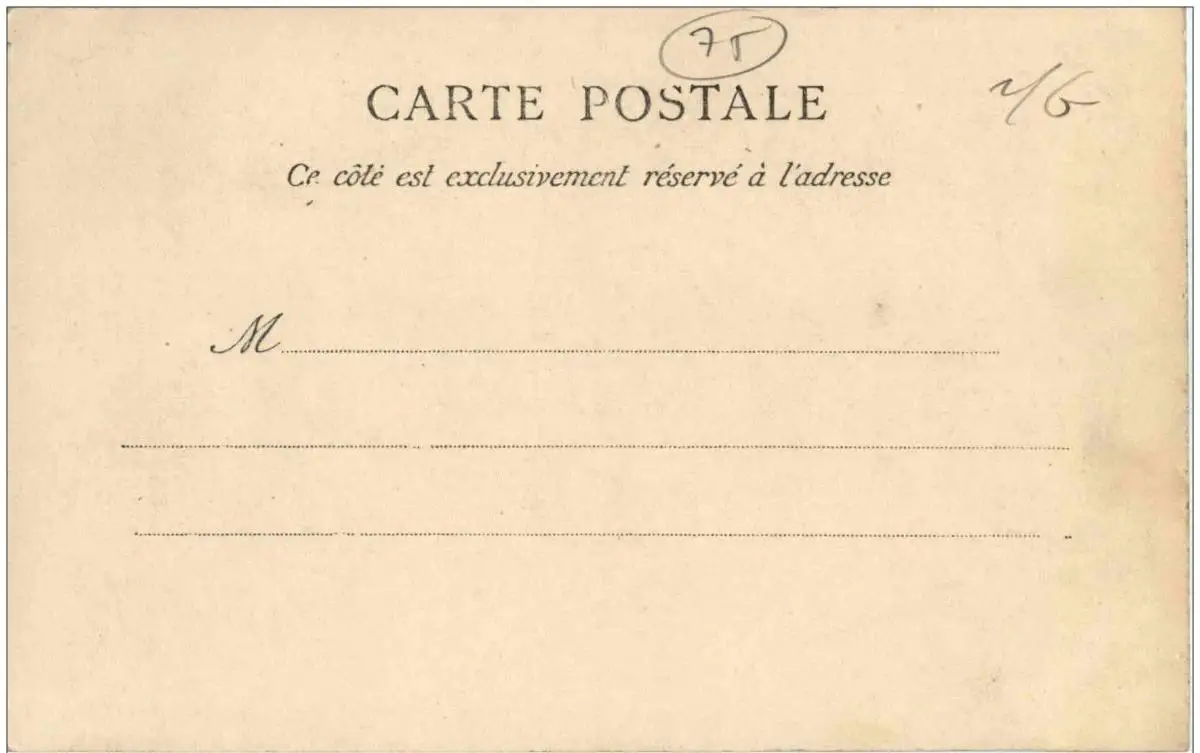 75
CARTE POSTALE
Ce côté est exclusivement réservé à l'adresse
M